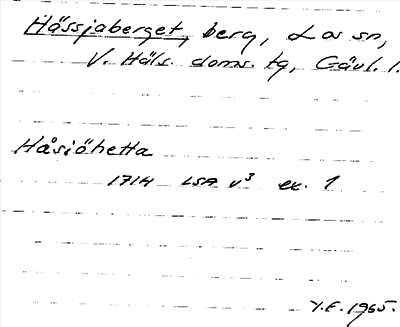 Hässjaberget, berg, Los sn,
V. Häls. doms. tg, Gävl. l.
Håsiöhetta
1714 LSA v³ ex. 1
Y.E. 1965.